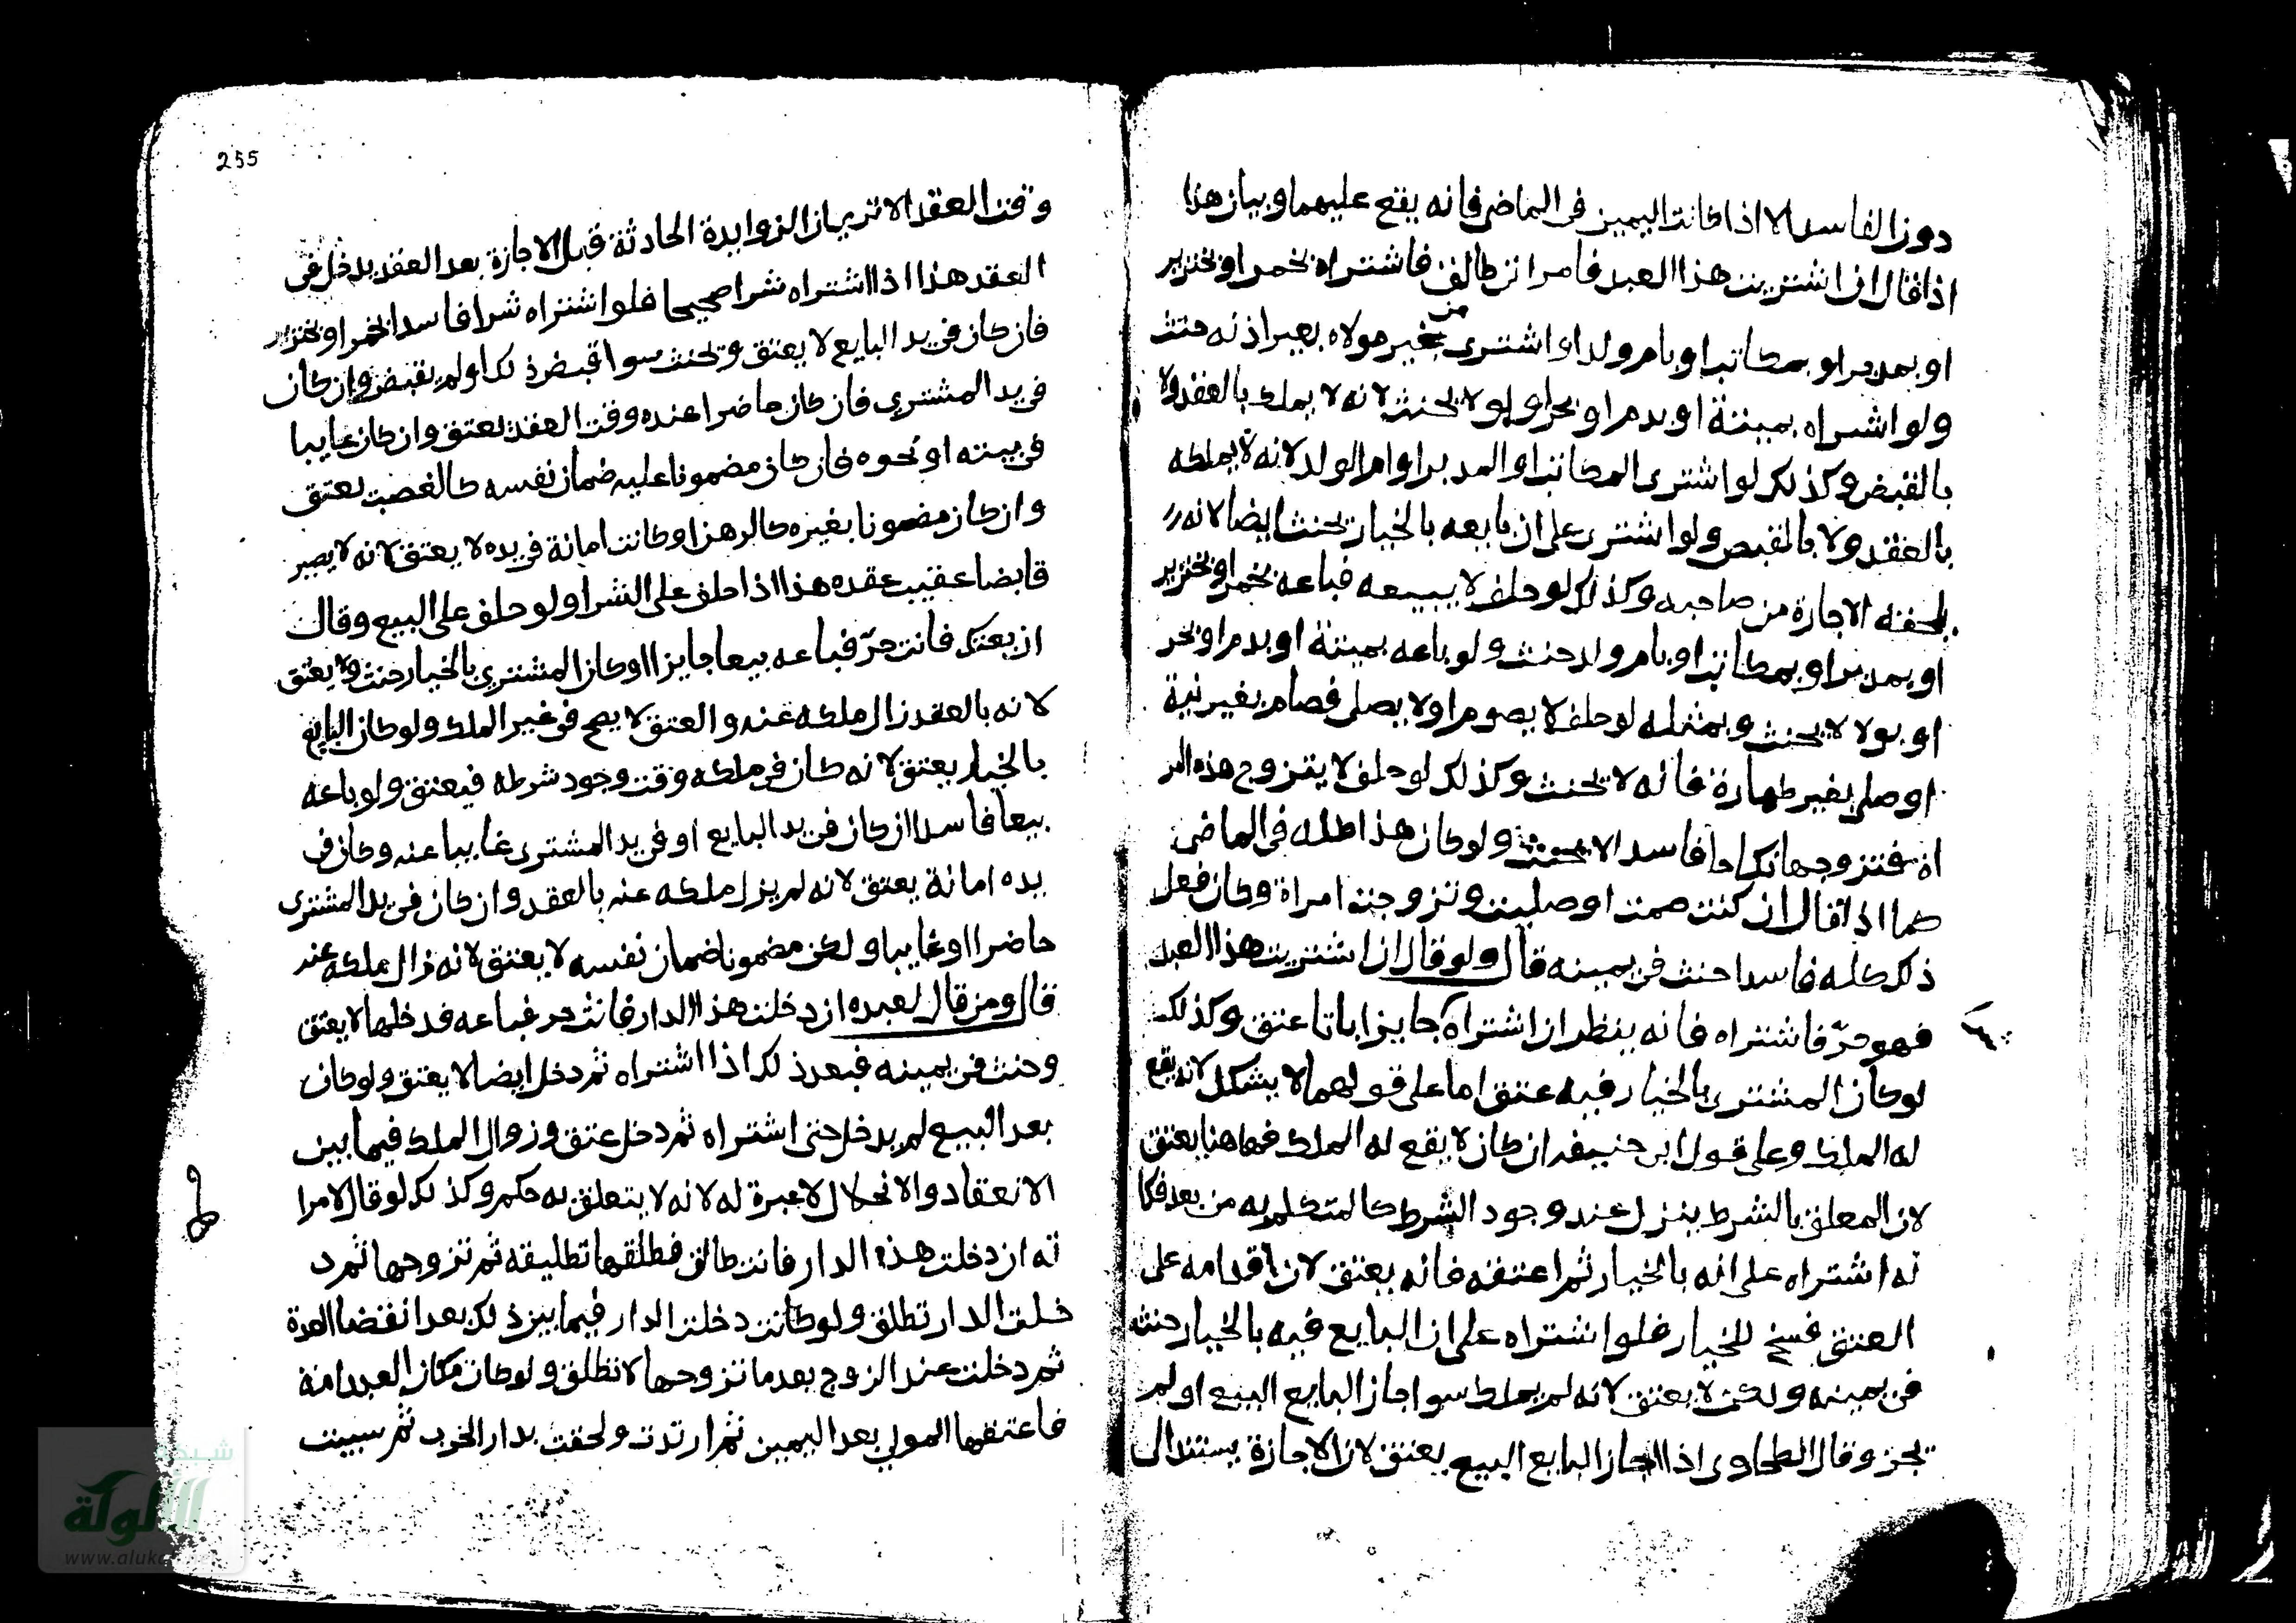 دون الفاسد الا اذا كانت اليمين فى الماضى فانه يقع عليهما وبيان هذا
اذا قال ان اشتريت هذا العبد فامراته طالق فاشتراه بخمر او بخنزير
او بمدبر او بمكاتب او بام ولد او اشترى من غير مولاه بغير اذنه حنث
ولو اشتراه بميتة او بدم او بحر او لا يحنث لانه لا يملك بالعقد ولا
بالقبض وكذلك لو اشترى المكاتب او المدبر او ام الولد لانه لا يملكه
بالعقد ولا بالقبض ولو اشترى على ان بايعه بالخيار يحنث ايضا لانه
يلحقه الاجازة من صاحبه وكذلك لو حلف لا يبيعه فباعه بخمر او بخنزير
او بمدبر او بمكاتب او بام ولد حنث ولو باعه بميتة او بدم او بحر
او بولا لا يحنث وبمثله لو حلف لا يصوم او لا يصلى فصام بغير نية
او صلى بغير طهارة فانه لا يحنث وكذلك لو حلف لا يتزوج هذه المر
اة فتزوجها نكاحا فاسدا لا يحنث ولو كان هذا كله فى الماضى
كما اذا قال ان كنت صمت او صليت وتزوجت امراة وكان فعل
ذلك كله فاسدا حنث فى يمينه قال ولو قال ان اشتريت هذا العبد
فهو حرّ فاشتراه فانه ينظر ان اشتراه جايزا باتا عتق وكذلك
لو كان المشترى بالخيار فيه عتق اما على قولهما لا يشكل لانه يقع
له الملك وعلى قول ابى حنيفه ان كان لا يقع له الملك فهاهنا يعتق
لان المعلق بالشرط ينزل عند وجود الشرط كالمتكلم به من بعد فكا
نه اشتراه على انه بالخيار ثم اعتقه فانه يعتق لان اقدامه على
العتق فسخ للخيار فلو اشتراه على ان البايع فيه بالخيار حنث
فى يمينه ولكن لا يعتق لانه لم يملك سوا اجاز البايع البيع او لم
يجز وقال الطحاوى اذا اجاز البايع البيع يعتق لان الاجازة يستند الى
255
وقت العقد الا ترى ان الزوايدة الحادثة قبل الاجازة بعد العقد يدخل فى
العقد هذا اذا اشتراه شرا صحيحا فلو اشتراه شرا فاسدا بخمر او بخنزير
فان كان فى يد البايع لا يعتق ويحنث سوا قبض ذلك او لم يقبض وان كان
فى يد المشترى فان كان حاضرا عنده وقت العقد يعتق وان كان غايبا
فى بيته او نحوه فان كان مضمونا عليه ضمان نفسه كالغصب يعتق
وان كان مضمونا بغيره كالرهن او كانت امانة فى يده لا يعتق لانه لا يصير
قابضا عقيب عقده هذا اذا حلف على الشرا ولو حلف على البيع وقال
ان بعتك فانت حرّ فباعه بيعا جايزا او كان المشترى بالخيار حنث ولا يعتق
لانه بالعقد زال ملكه عنه والعتق لا يصح فى غير الملك ولو كان البايع
بالخيار يعتق لانه كان فى ملكه وقت وجود شرطه فيعتق ولو باعه
بيعا فاسدا ان كان فى يد البايع او فى يد المشترى غايبا عنه وكان فى
يده امانة يعتق لانه لم يزل ملكه عنه بالعقد وان كان فى يد المشترى
حاضرا او غايبا ولكن مضمونا ضمان نفسه لا يعتق لانه زال ملكه عنه
قال ومن قال لعبده ان دخلت هذا الدار فانت حر فباعه فدخلها لا يعتق
وحنث فى يمينه فبعد ذلك اذا اشتراه ثم دخل ايضا لا يعتق ولو كان
بعد البيع لم يدخل حتى اشتراه ثم دخل عتق وزوال الملك فيما بين
الانعقاد والانحلال لا عبرة له لانه لا يتعلق به حكم وكذلك لو قال لامرا
ته ان دخلت هذه الدار فانت طالق فطلقها تطليقه ثم تزوجها ثم د
خلت الدار تطلق ولو كانت دخلت الدار فيما بين ذلك بعد انقضا العدة
ثم دخلت عند الزوج بعد ما تزوجها لا تطلق ولو كان مكان العبد امة
فاعتقها المولى بعد اليمين ثم ارتدت ولحقت بدار الحرب ثم سبيت
شبكة
الألوكة